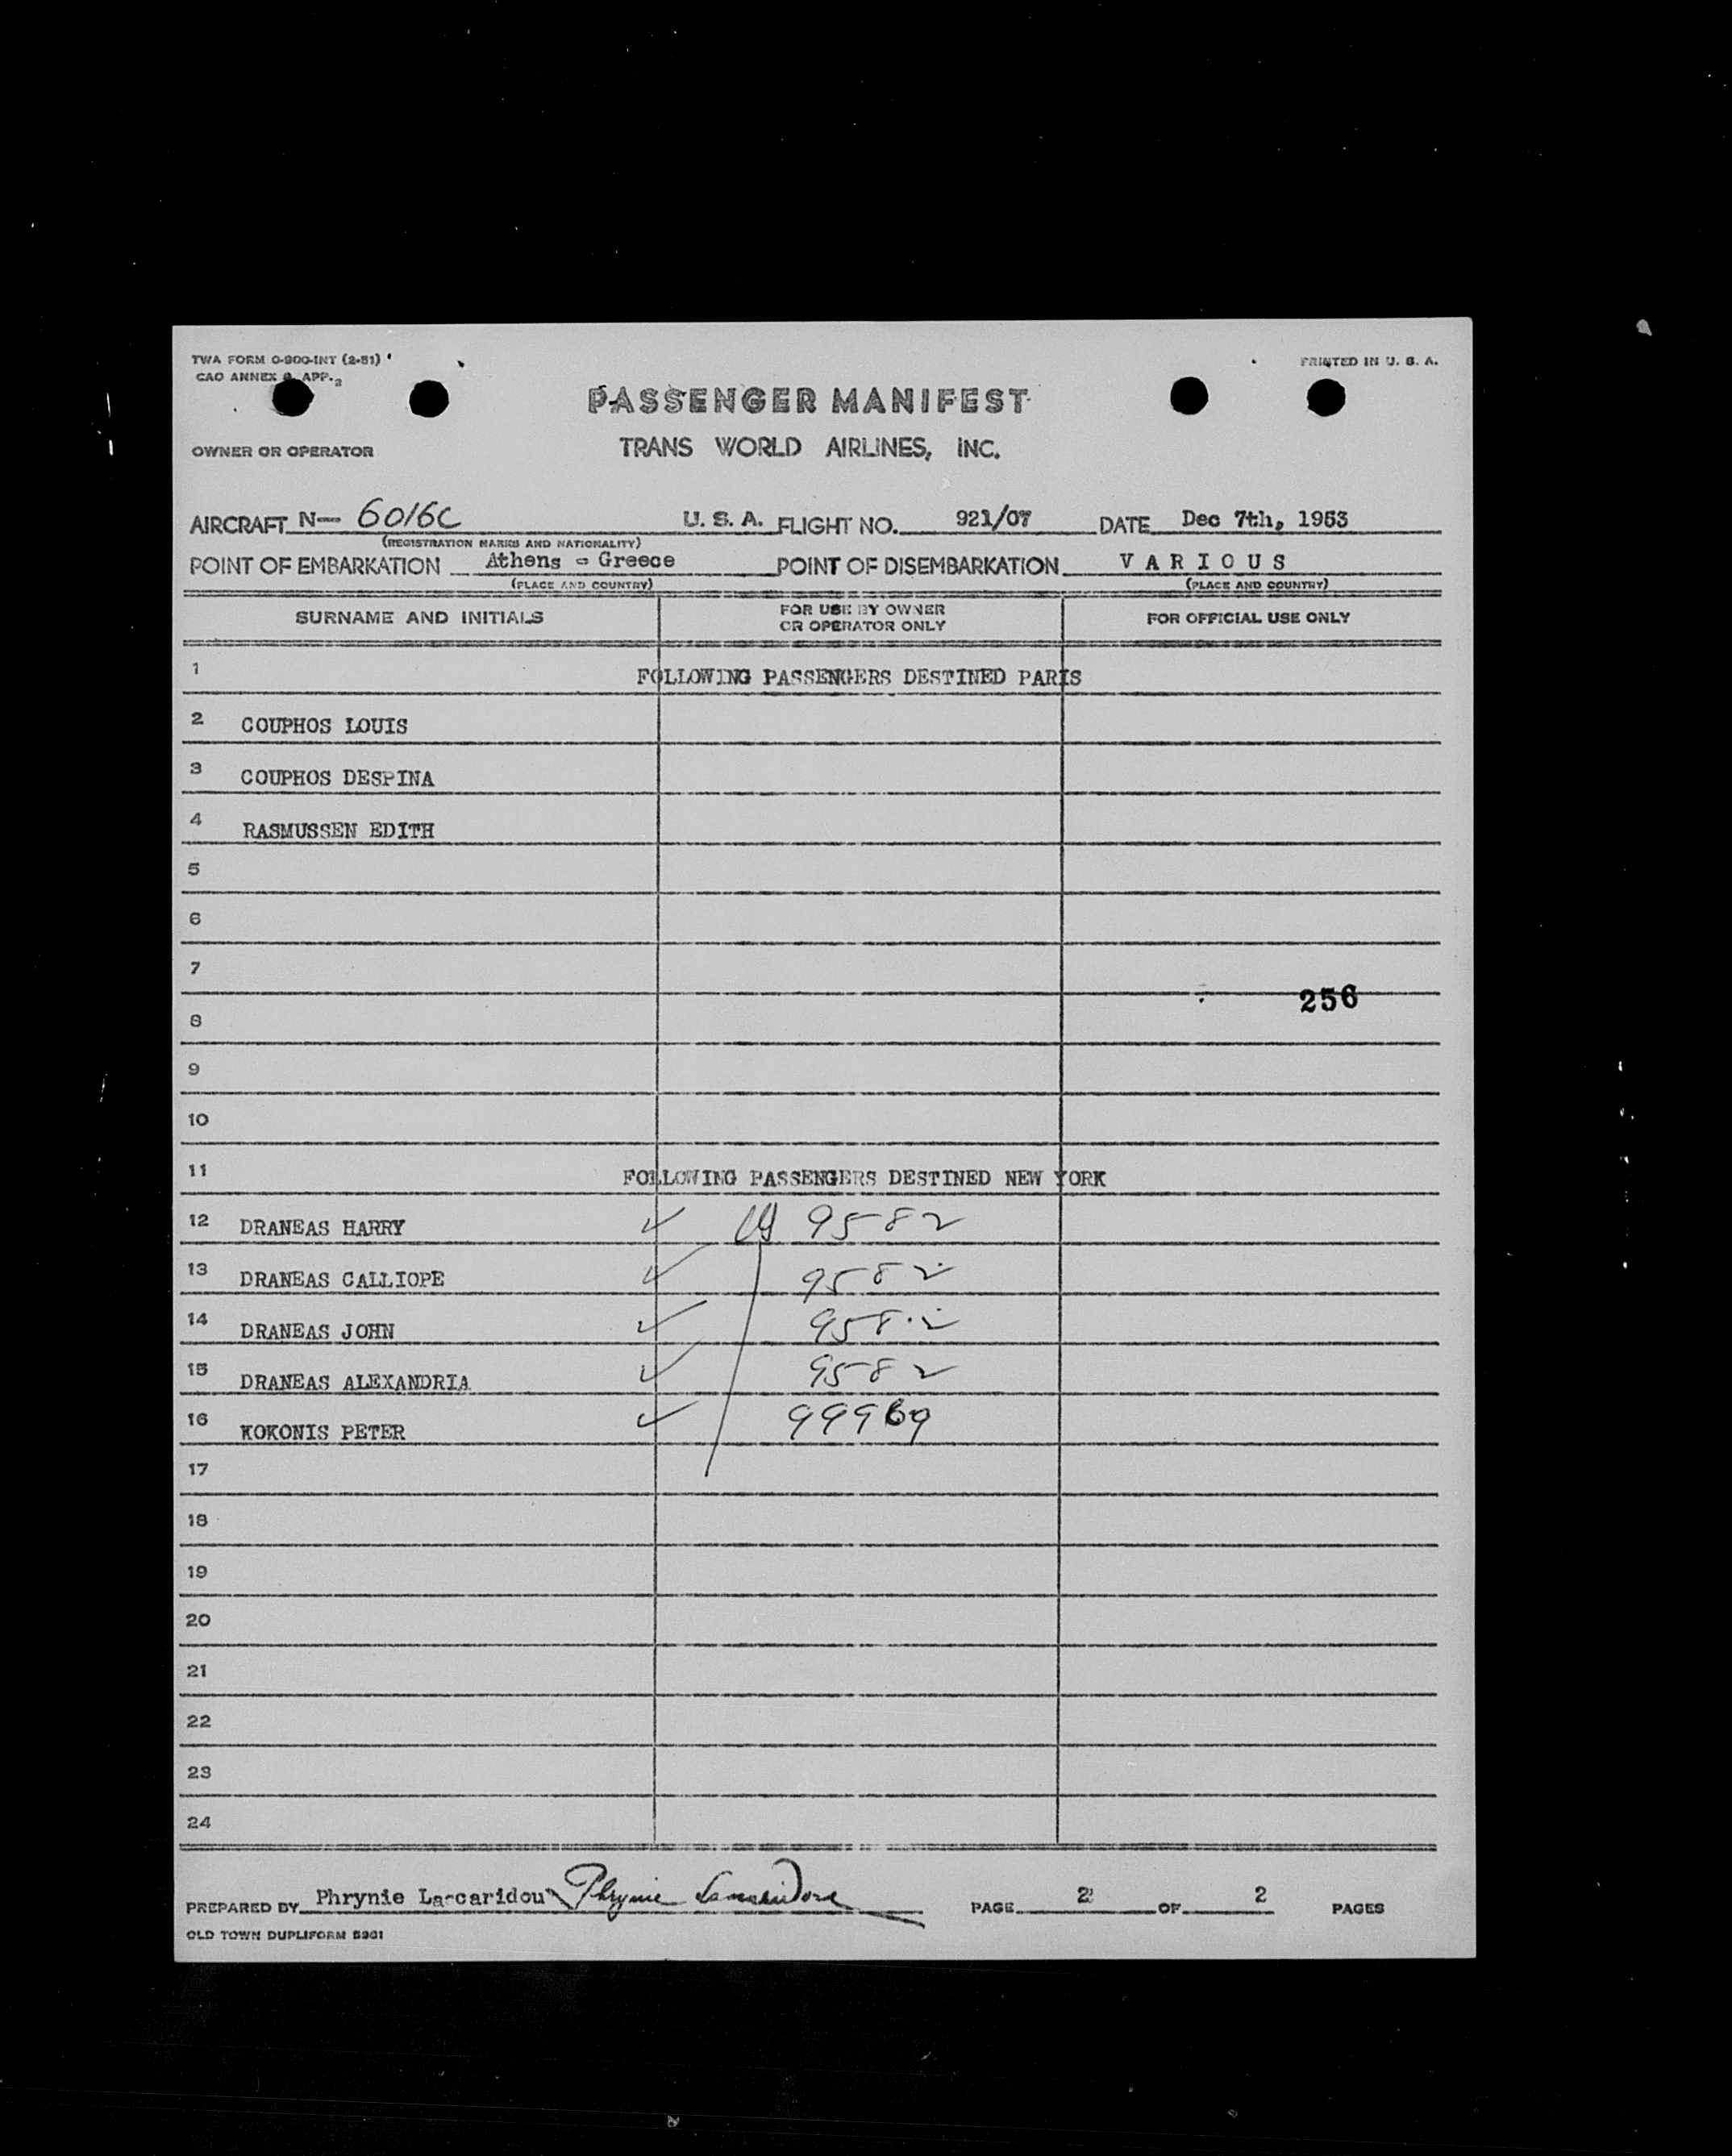 TWA FORM O-900-INT (2-51)
PRINTED IN U. S. A.
CAO ANNEX 9 APP. 2
PASSENGER MANIFEST
OWNER OR OPERATOR TRANS WORLD AIRLINES, INC.
AIRCRAFT N— 6016C U. S. A. FLIGHT NO. 921/07 DATE Dec 7th, 1953
(REGISTRATION MARKS AND NATIONALITY)
POINT OF EMBARKATION Athens - Greece POINT OF DISEMBARKATION V A R I O U S
(PLACE AND COUNTRY) (PLACE AND COUNTRY)
SURNAME AND INITIALS FOR USE BY OWNER OR OPERATOR ONLY FOR OFFICIAL USE ONLY
1 FOLLOWING PASSENGERS DESTINED PARIS
2 COUPHOS LOUIS
3 COUPHOS DESPINA
4 RASMUSSEN EDITH
5
6
7
256
8
9
10
11 FOLLOWING PASSENGERS DESTINED NEW YORK
12 DRANEAS HARRY ✓ 9582
13 DRANEAS CALLIOPE ✓ 9582
14 DRANEAS JOHN ✓ 9582
15 DRANEAS ALEXANDRIA ✓ 9582
16 KOKONIS PETER ✓ 99969
17
18
19
20
21
22
23
24
PREPARED BY Phrynie Lascaridou Phrynie Lascaridou PAGE 2 OF 2 PAGES
OLD TOWN DUPLIFORM 5961